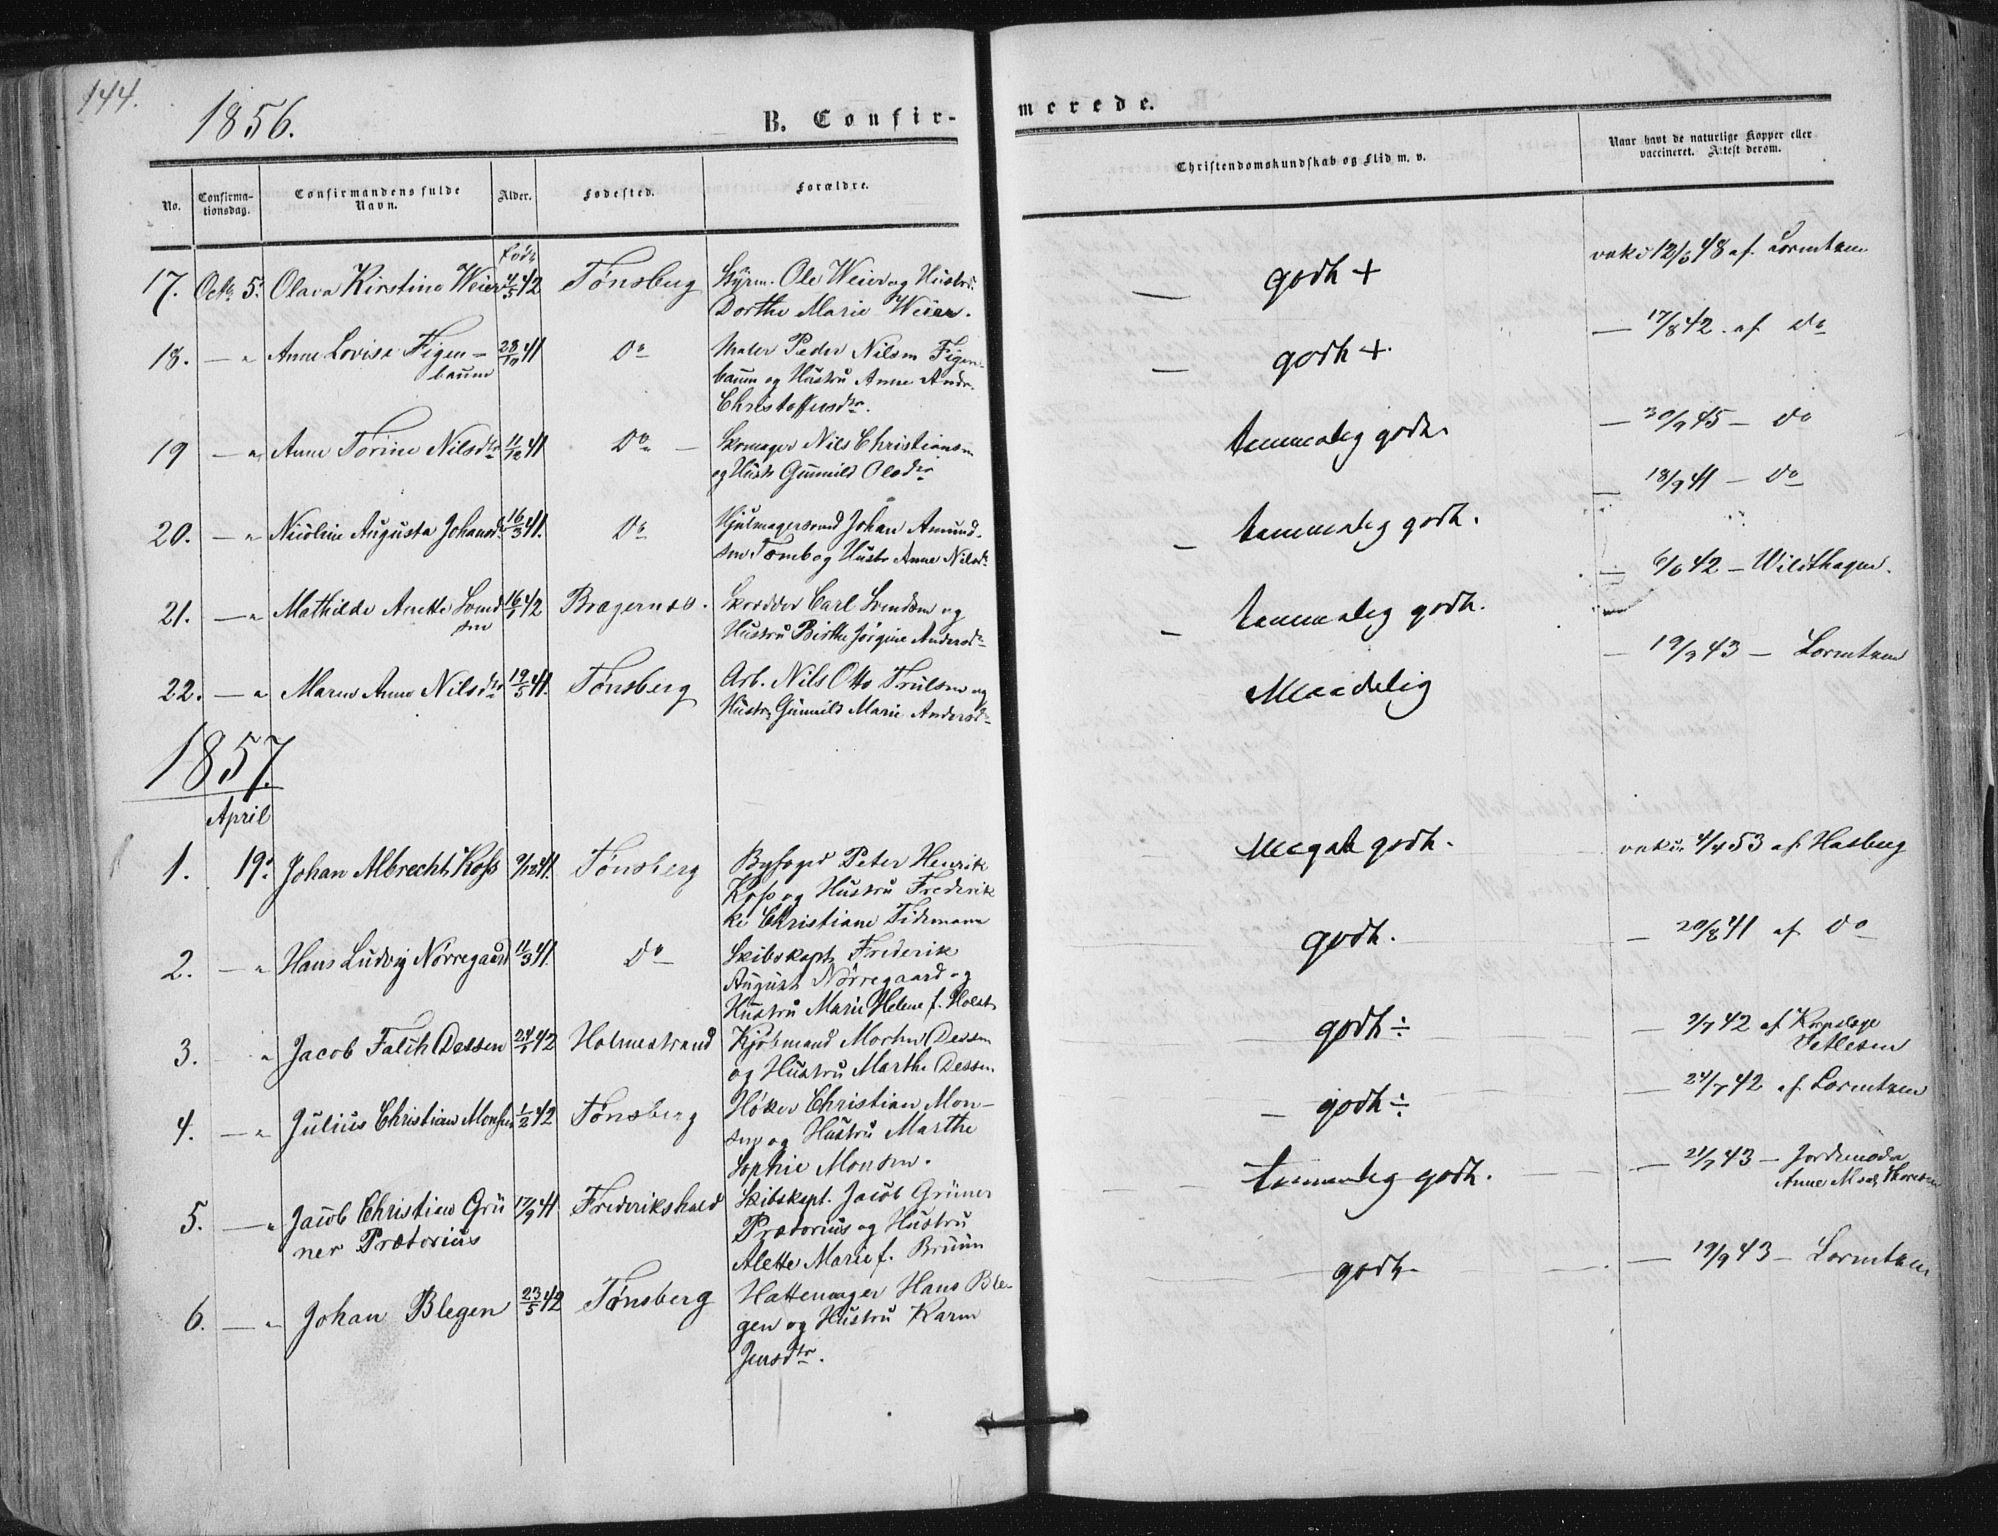 144.
1856.
B. Confir-
merede.
No.
Confirma-
tionsdag.
Confirmandens fulde
Navn.
Alder.
Fødested.
Forældre.
Christendomskundskab og Flid m. v.
Naar havt de naturlige Kopper eller
vaccineret. Attest derom.
født
17. Octr 5. Olava Kirstine Weier 4/5 42 Tønsberg Styrm. Ole Weier og Hustr.
Dorthe Marie Weier.
— godt + vakc 12/6 48 af Lorentzen
18. — " Anne Lovise Figen-
baum
28/12 41 Do Maler Peder Nilsen Figen-
baum og Hustru Anne Andr.
Christoffersdtr.
— godt + — 17/8 42. af Do
19 — " Anne Torine Nilsdtr 11/12 41 Do — Skomager Nils Christiansen
og Hustr Gunnild Olsdtr
temmelig godt. — 30/9 45 — Do
20. — " Nicoline Augusta Johansdr 16/3 41. Do Hjulmagersvend Johan Amund-
sen Tomb og Hustr Anne Nilsdr
— temmelig godt. — 18/9 41 — Do
21. — " Mathilde Anette Svend
sen
16/1 42 Bragernes. Skrædder Carl Svendsen og
Hustru Birthe Jørgine Andersdr
— temmelig godt. 6/6 42 — Wildthagen.
22. — " Maren Anne Nilsdtr 19/5 41. Tønsberg Arb. Nils Otto Trulsen og
Hustr Gunnild Marie Andersdr
Maadelig — 19/9 43 — Lorentzen
1857.
April
1. 19. Johan Albrecht Koss 9/12 41. Tønsberg Byfoged Peter Henrik
Koss og Hustru Frederik
ke Christiane Tidemann
Meget godt. vakc. 4/4 53 af Hasberg
2. — " Hans Ludvig Nørregaard 11/3 41. Do Skibskapt. Frederik
August Nørregaard og
Hustru Marie Helene f. Holst
godt. — 20/8 41 af Do
3. — " Jacob Falck Dessen 24/1 42 Holmestrand Kjøbmand Morten Dessen
og Hustru Marthe Dessen
godt ÷ — 9/7 42 af Korpslæge
Vetlesen
4. — " Julius Christian Monsen 1/2 42 Tønsberg Høker Christian Mon-
sen og Hustru Marthe
Sophie Monsen.
— godt ÷ — 24/7 42 af Lorentzen
5. — " Jacob Christian Grü
ner Prætorius
17/9 41 Frederikshald Skibskapt. Jacob Grüner
Prætorius og Hustru
Alette Marie f. Bruun
temmelig godt. — 21/7 43 — Jordemoder
Anne Thoresen
6. — " Johan Blegen 23/5 42 Tønsberg Hattemager Hans Ble-
gen og Hustru Karen
Jensdtr.
godt. — 19/9 43 — Lorentzen